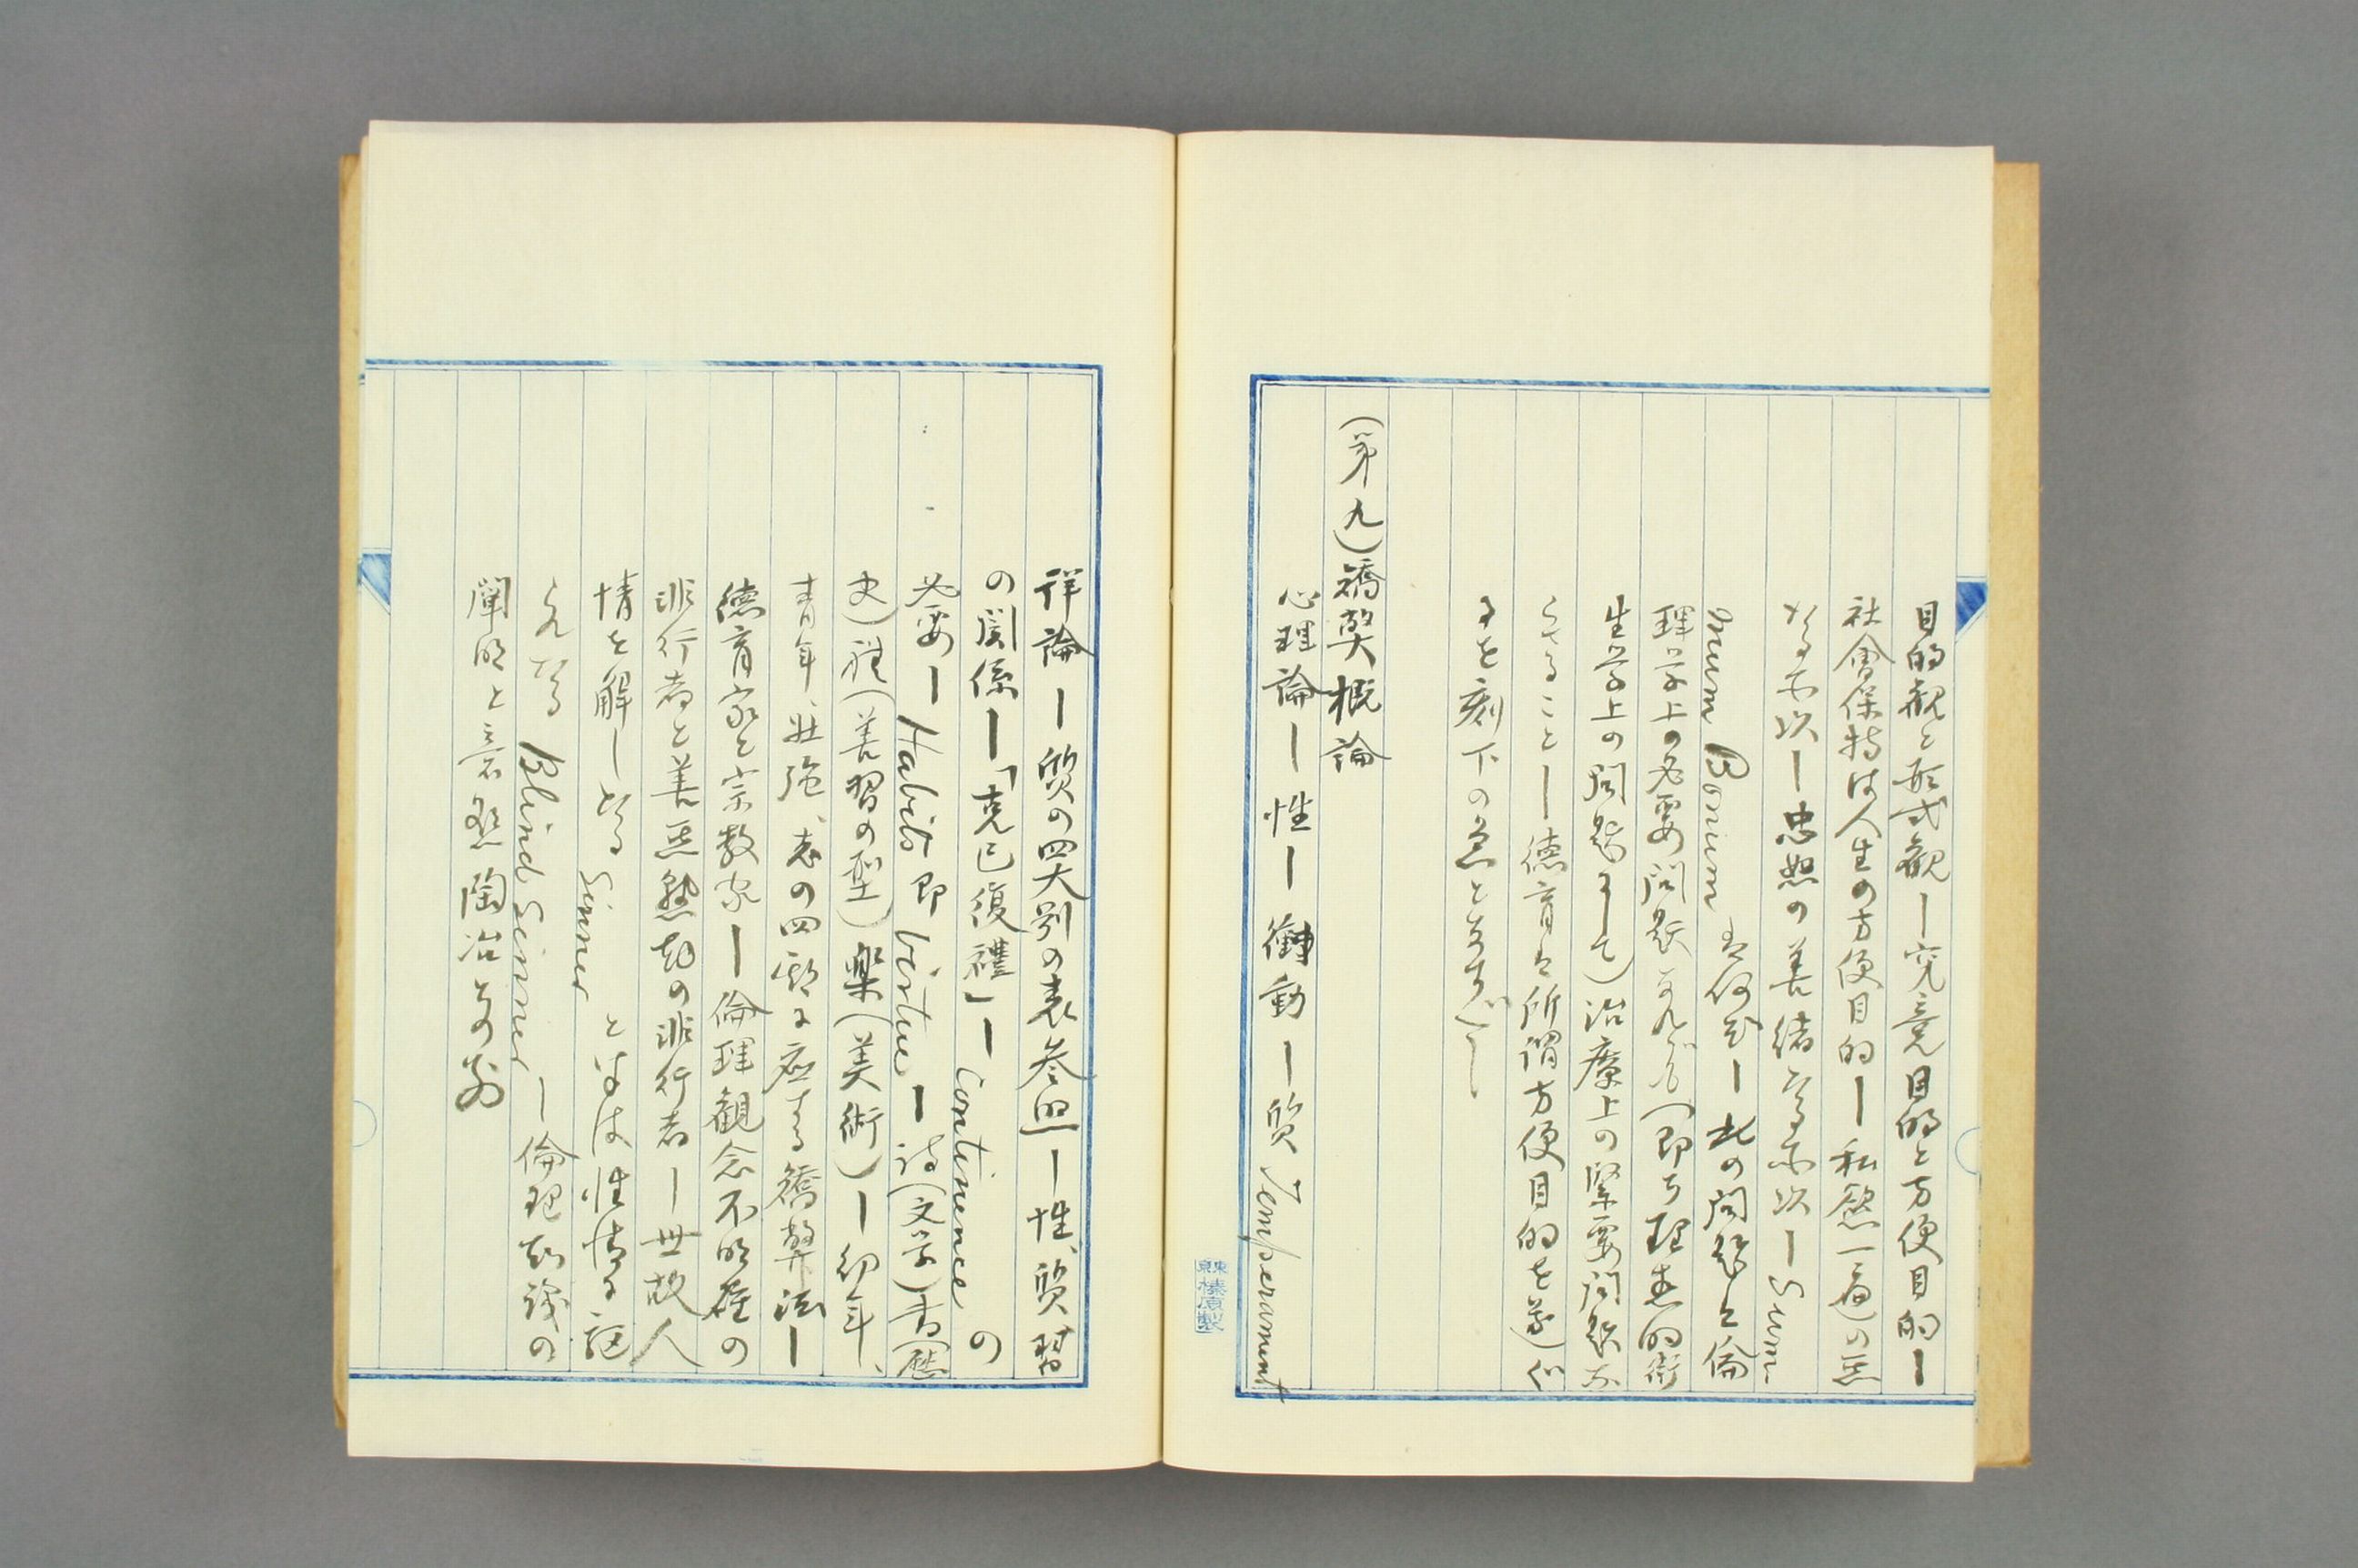 目的観と形式観ー究竟目的と方便目的ー
社會保持は人生の方便目的ー私慾一遍の悪
なる所以ー忠恕の善緒なる所以ーSum-
mum Bonumは何ぞー此の問題は倫
理学上の必要問題なれども(即ち理想的衛
生学上の問題にして)治療上の緊要問題な
らざることー徳育は所謂方便目的を
を刻下の急となすべし
(第九)矯弊概論
心理論ー性ー衝動ー質 Temperament
詳論ー質の四大別の表参照ー性、質、習
の関係ー「克己復禮」ーContinence の
必要ーHabits 即 Virtueー詩(文学)書(歴
史)禮(善習の型)樂(美術)ー幼年、
青年、壮強、老の四期に応する矯弊法ー
徳育家と宗教家ー倫理観念不明確の
非行者と善悪熟知の非行者ー世故人
情を解しなる sinner とならは性情に訴
へんなる Blind sinnerー倫理知識の
闡明と意思陶冶
東京榛原製